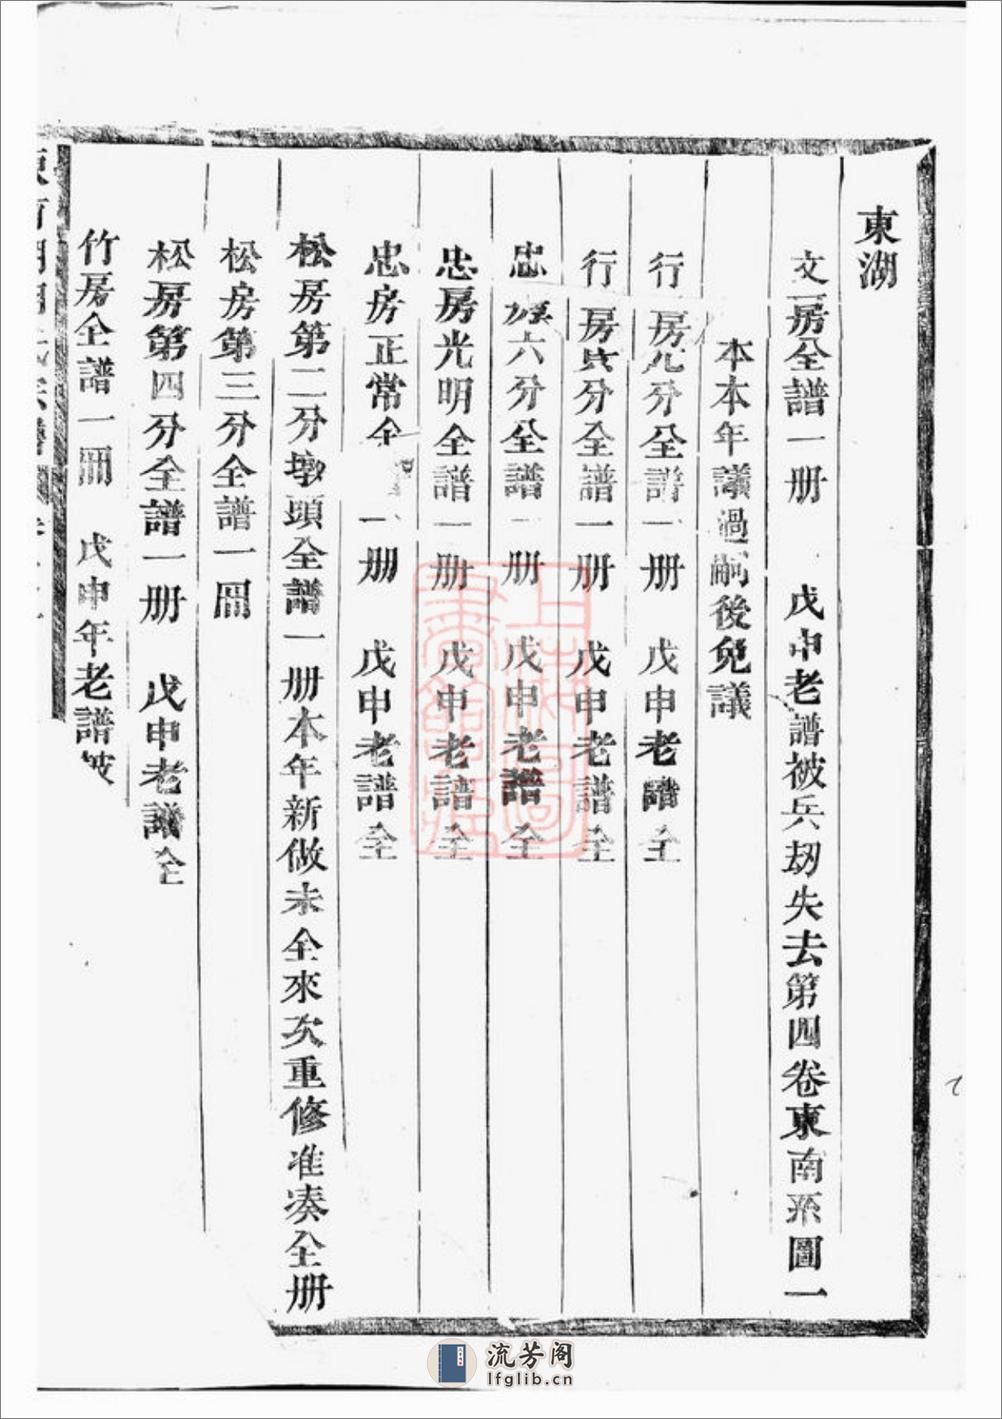 東湖
文房全譜一册　戊申老譜被兵刼失去第四卷東南系圖一
本本年議過嗣後免議
行房 分全譜一册　戊申老譜全
行房 分全譜一册　戊申老譜全
忠 六分全譜一册　戊申老譜全
忠房光明全譜一册　戊申老譜全
忠房正常全 一册　戊申老譜全
松房第二分墩頭全譜一册本年新做未全來次重修准凑全册
松房第三分全譜一冊
松房第四分全譜一册　戊申老譜全
竹房全譜一冊　戊申年老譜被
上海圖書館藏
流芳阁
lfglib.cn